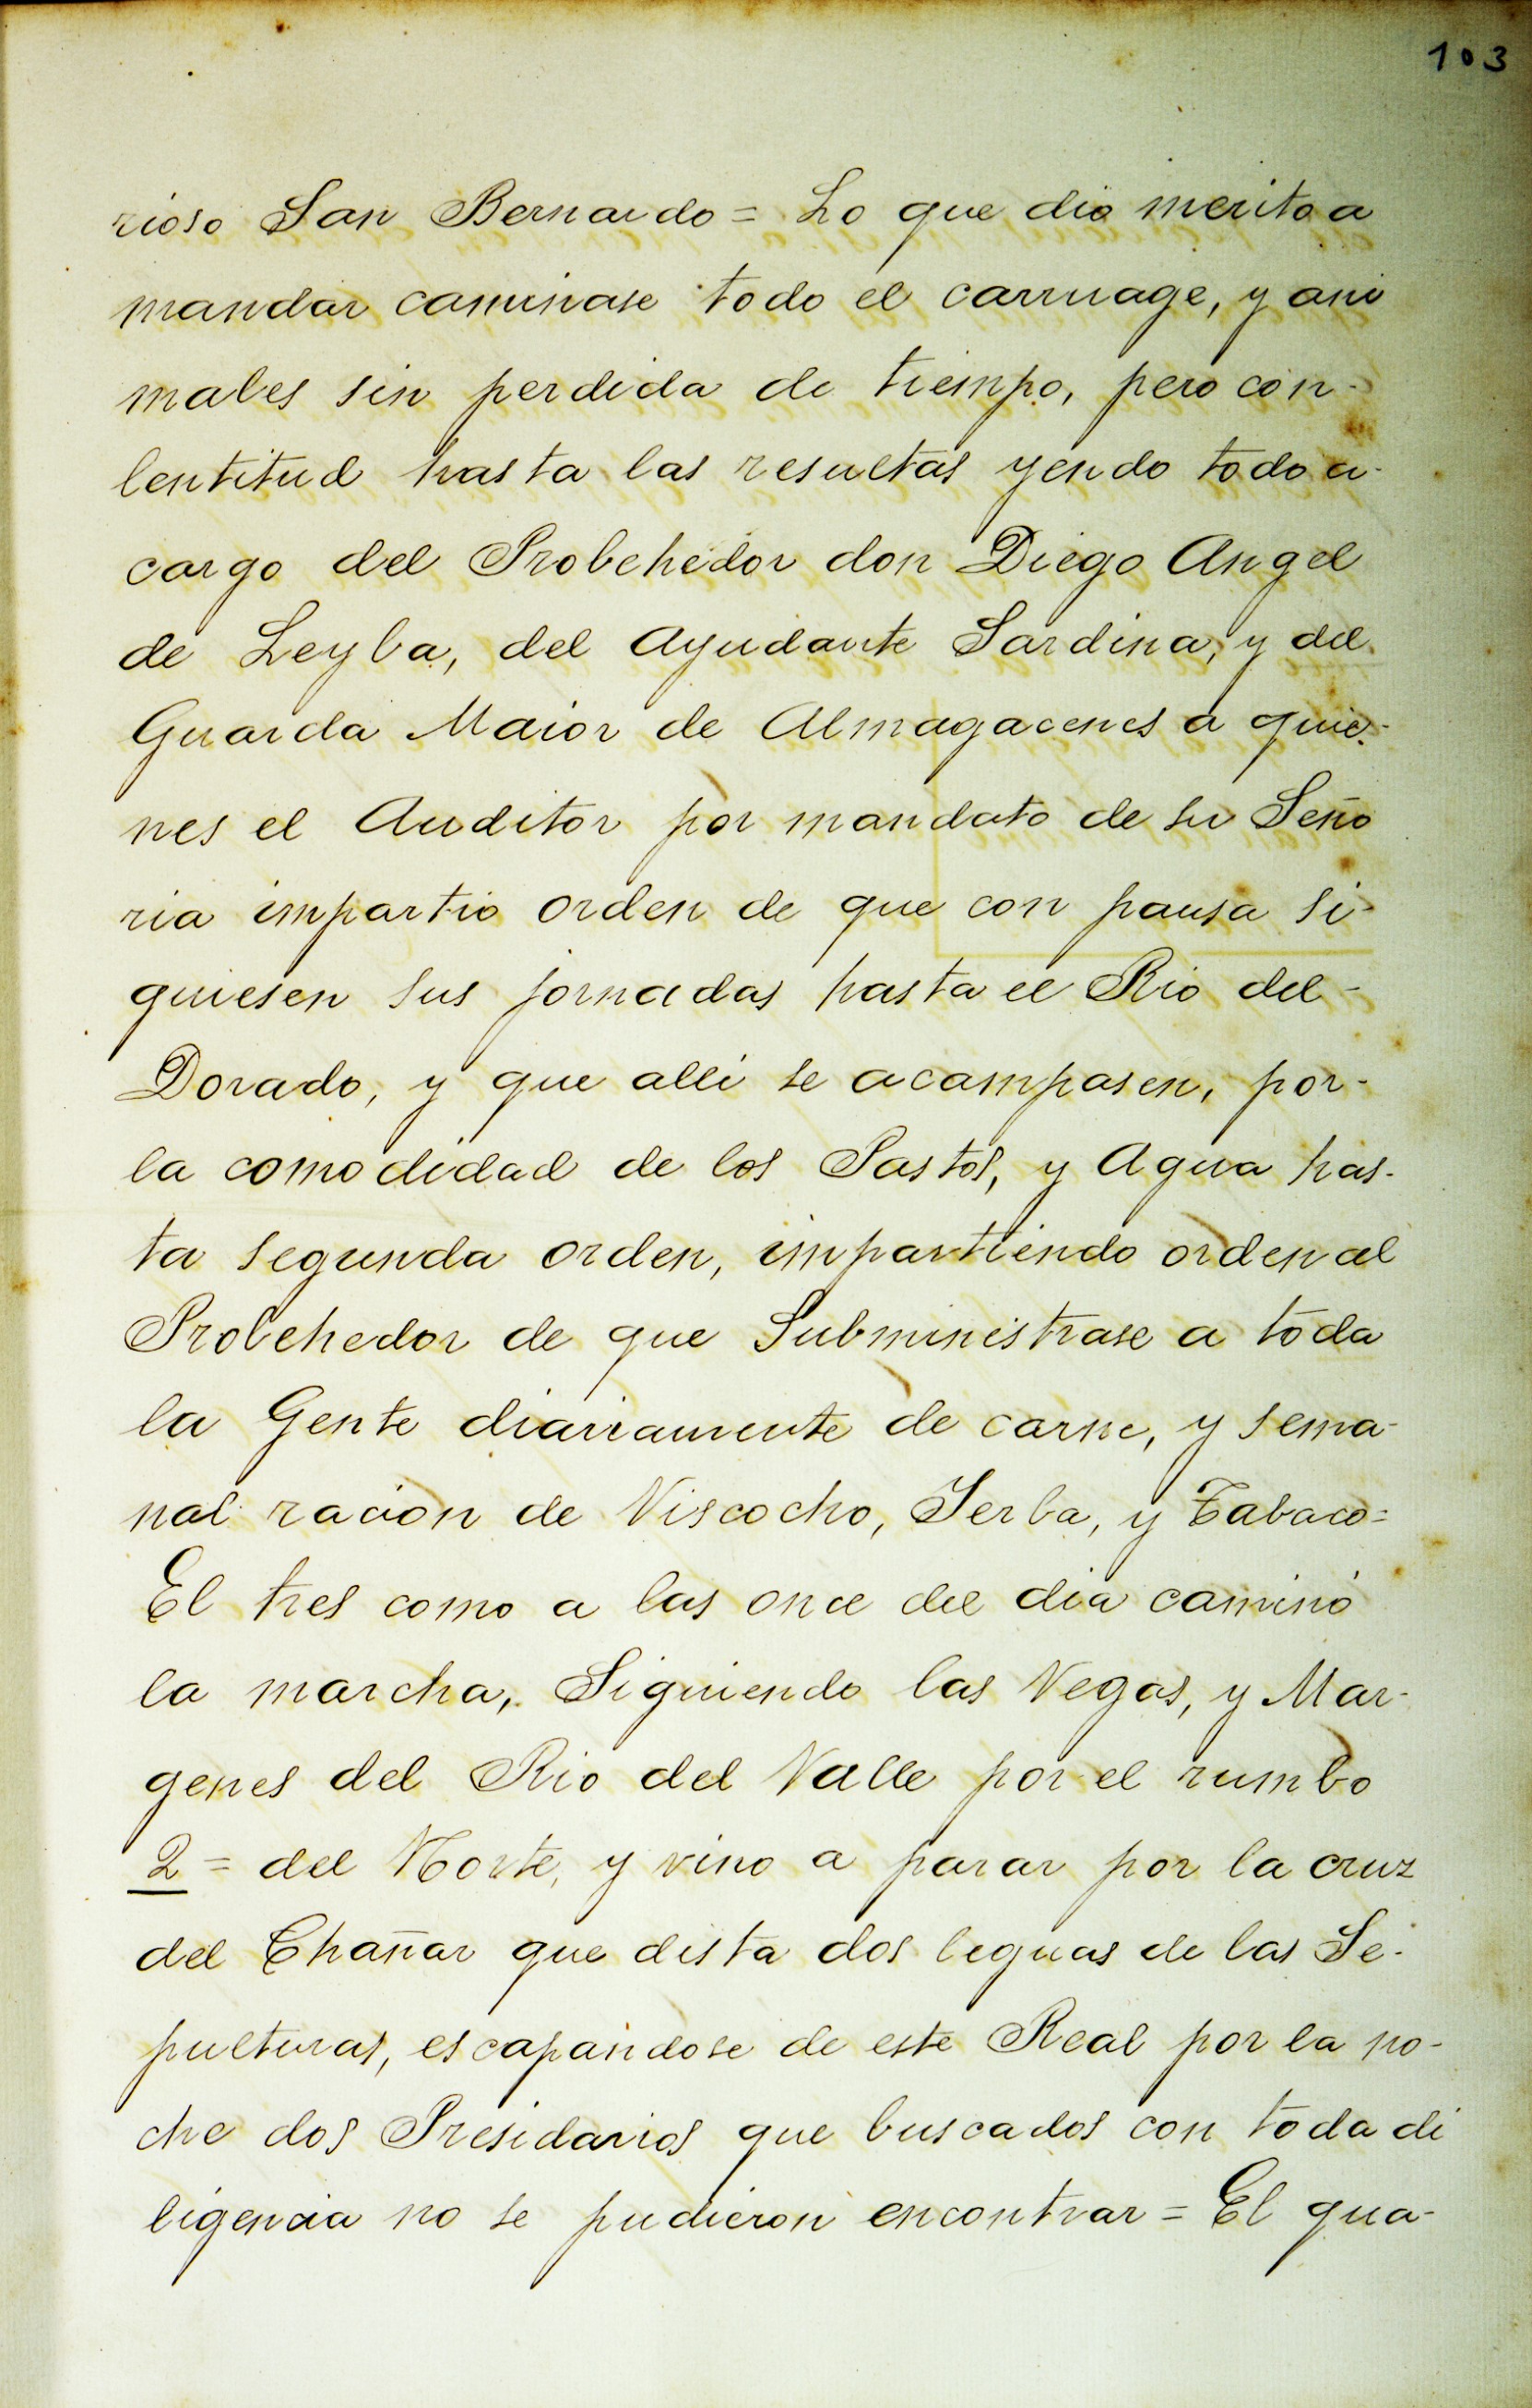 103
rioso San Bernardo = Lo que dio merito a
mandar caminase todo el carruage, y ani
males sin perdida de tiempo, pero con-
lentitud hasta las resultas yendo todo a-
cargo del Probehedor don Diego Angel
de Leyba, del Ayudante Sardina, y del
Guarda Maior de Almagacenes a quie-
nes el Auditor por mandato de su Seño
ria impartio orden de que con pausa si-
guiesen sus jornadas hasta el Rio del-
Dorado, y que alli se acampasen, por-
la comodidad de los Pastos, y Agua has-
ta segunda orden, impartiendo orden al
Probehedor de que Subministrase a toda
la Gente diariamente de carne, y sema-
nal racion de Viscocho, Yerba, y Tabaco=
El tres como a las once del dia caminó
la marcha, Siguiendo las Vegas, y Mar-
genes del Rio del Valle por el rumbo
2 = del Norte, y vino a parar por la cruz
del Chañar que dista dos leguas de las Se-
pulturas, escapandose de este Real por la no-
che dos Presidarios que buscados con toda di
ligencia no se pudieron encontrar = El qua-